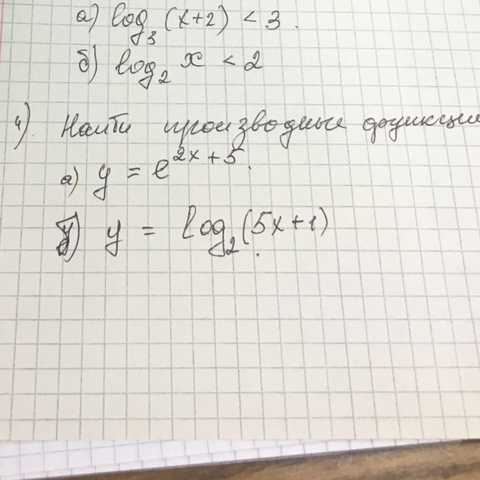 а) log₃ (x+2) < 3.
б) log₂ x < 2
4). Найти производные функции
а) y = e^(2x+5).
б) y = log₂(5x+1)